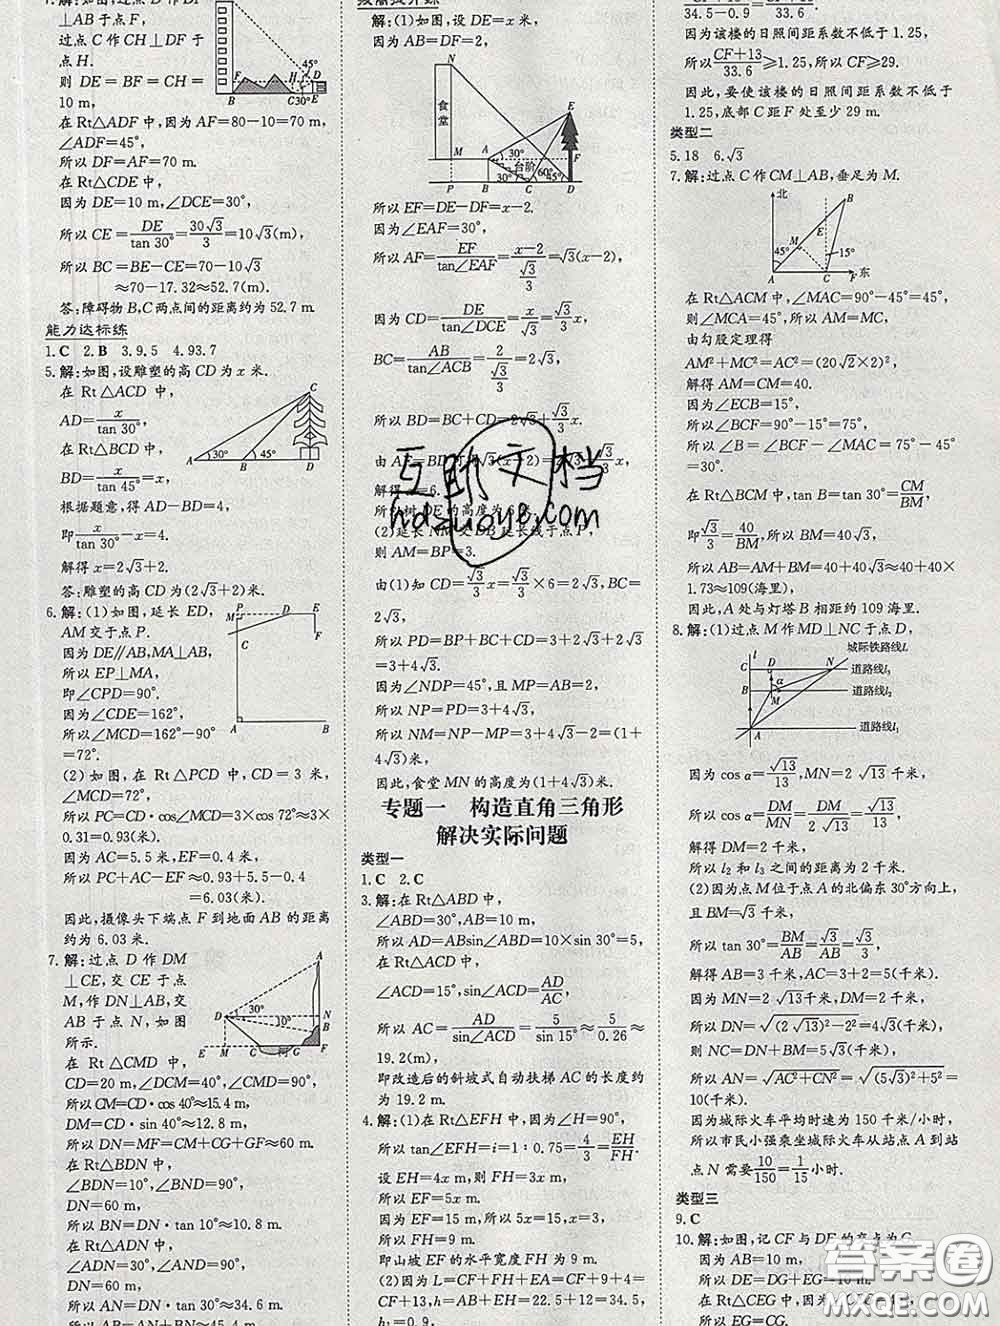 7.解:如图,过点D作DF
⊥AB于点F,
过点C作CH⊥DF于
点H.
则DE=BF=CH=
10 m,
在Rt△ADF中,因为AF=80-10=70 m,
∠ADF=45°,
所以DF=AF=70 m.
在Rt△CDE中,
因为DE=10 m,∠DCE=30°,
所以CE=DE/tan 30°=30√3/3=10√3(m),
所以BC=BE-CE=70-10√3
≈70-17.32≈52.7(m).
答:障碍物B,C两点间的距离约为52.7 m.
能力达标练
1.C 2.B 3.9.5 4.93.7
5.解:如图,设雕塑的高CD为x米.
在Rt△ACD中,
AD=x/tan30°,
在Rt△BCD中,
BD=x/tan 45°=x,
根据题意,得AD-BD=4,
即x/tan30°-x=4.
解得x=2√3+2.
答:雕塑的高CD为(2√3+2)米.
6.解:(1)如图,延长ED,
AM交于点P.
因为DE∥AB,MA⊥AB,
所以EP⊥MA,
即∠CPD=90°.
因为∠CDE=162°,
所以∠MCD=162°-90°
=72°.
(2)如图,在Rt△PCD中,CD=3米,
∠MCD=72°,
所以PC=CD·cos∠MCD=3×cos 72°≈3×
0.31=0.93(米).
因为AC=5.5米,EF=0.4米,
所以PC+AC-EF≈0.93+5.5-0.4
=6.03(米).
因此,摄像头下端点F到地面AB的距离
约为6.03米.
7.解:过点D作DM
⊥CE,交CE于点
M,作DN⊥AB,交
AB于点N,如图
所示.
在Rt△CMD中,
CD=20 m,∠DCM=40°,∠CMD=90°,
所以CM=CD·cos40°≈15.4 m,
DM=CD·sin 40°≈12.8 m,
所以DN=MF=CM+CG+GF=60 m.
在Rt△BDN中,
∠BDN=10°,∠BND=90°,
DN=60 m,
所以BN=DN·tan 10°≈10.8 m.
在Rt△ADN中,
∠ADN=30°,∠AND=90°,
DN=60 m,
所以AN=DN·tan 30°≈34.6 m.
拔高提升练
解:(1)如图,设DE=x米,
因为AB=DF=2,
食堂
台阶
所以EF=DE-DF=x-2.
因为∠EAF=30°,
所以AF=EF/tan∠EAF=(x-2)/(√3/3)=√3(x-2),
因为CD=DE/tan∠DCE=x/√3=√3/3x,
BC=AB/tan∠ACB=2/(√3/3)=2√3,
所以BD=BC+CD=2√3+√3/3x.
由AF=BD可得√3(x-2)=2√3+√3/3x,
解得x=6.
所以树DE的高度为6米.
(2)延长NM交DB延长线于点P,
则AM=BP=3.
由(1)知CD=√3/3x=√3/3×6=2√3,BC=
2√3,
所以PD=BP+BC+CD=3+2√3+2√3
=3+4√3.
因为∠NDP=45°,且MP=AB=2,
所以NP=PD=3+4√3,
所以NM=NP-MP=3+4√3-2=(1+
4√3)米,
因此,食堂MN的高度为(1+4√3)米.
专题一 构造直角三角形
解决实际问题
类型一
1.C 2.C
3.解:在Rt△ABD中,
∠ABD=30°,AB=10 m,
所以AD=ABsin∠ABD=10×sin 30°=5,
在Rt△ACD中,
∠ACD=15°,sin∠ACD=AD/AC,
所以AC=AD/sin∠ACD=5/sin 15°≈5/0.26≈
19.2(m),
即改造后的斜坡式自动扶梯AC的长度约
为19.2 m.
4.解:(1)在Rt△EFH中,因为∠H=90°,
所以tan∠EFH=i=1:0.75=4/3=EH/FH.
设EH=4x m,则FH=3x m,
所以EF=5x m.
因为EF=15 m,所以5x=15,x=3,
所以FH=9 m.
即山坡EF的水平宽度FH为9 m.
(2)因为L=CF+FH+EA=CF+9+4=
CF+13,h=AB+EH=22.5+12=34.5,
h₁=0.9,
34.5-0.9 33.6
因为该楼的日照间距系数不低于1.25,
所以(CF+13)/33.6≥1.25,所以CF≥29.
因此,要使该楼的日照间距系数不低于
1.25,底部C距F处至少29 m.
类型二
5.18 6.√3
7.解:过点C作CM⊥AB,垂足为M.
北
东
在Rt△ACM中,∠MAC=90°-45°=45°,
则∠MCA=45°,所以AM=MC,
由勾股定理得
AM²+MC²=AC²=(20√2×2)²,
解得AM=CM=40.
因为∠ECB=15°,
所以∠BCF=90°-15°=75°,
所以∠B=∠BCF-∠MAC=75°-45°
=30°,
在Rt△BCM中,tan B=tan 30°=CM/BM,
即√3/3=40/BM,所以BM=40√3,
所以AB=AM+BM=40+40√3≈40+40×
1.73≈109(海里).
因此,A处与灯塔B相距约109海里.
8.解:(1)过点M作MD⊥NC于点D,
城际铁路线l
道路线l₃
道路线l₂
道路线l₁
因为cos α=√13/13,MN=2√13千米,
所以cos α=DM/MN=DM/2√13=√13/13,
解得DM=2千米.
所以l₂和l₃之间的距离为2千米.
(2)因为点M位于点A的北偏东30°方向上,
且BM=√3千米,
所以tan 30°=BM/AB=√3/AB=√3/3,
解得AB=3千米,AC=3+2=5(千米).
因为MN=2√13千米,DM=2千米,
所以DN=√((2√13)²-2²)=4√3(千米),
则NC=DN+BM=5√3(千米),
所以AN=√(AC²+CN²)=√((5√3)²+5²)=
10(千米).
因为城际火车平均时速为150千米/小时,
所以市民小强乘坐城际火车从站点A到站
点N需要10/150=1/15小时.
类型三
9.C
10.解:如图,记CF与DE的交点为G,
因为AB=10 m,
所以DE=DG+EG=10 m.
在Rt△CEG中,
所以EG=CG.
互助文档
hdzuoye.com
答案圈
MXQE.COM